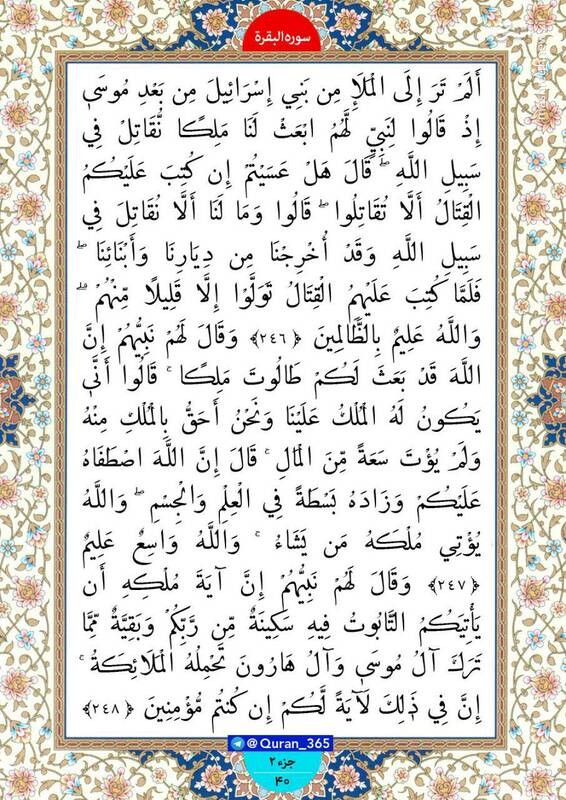 سوره البقرة
أَلَمْ تَرَ إِلَى الْمَلَإِ مِن بَنِي إِسْرَائِيلَ مِن بَعْدِ مُوسَىٰ
إِذْ قَالُوا لِنَبِيٍّ لَّهُمُ ابْعَثْ لَنَا مَلِكًا نُّقَاتِلْ فِي
سَبِيلِ اللَّهِ ۖ قَالَ هَلْ عَسَيْتُمْ إِن كُتِبَ عَلَيْكُمُ
الْقِتَالُ أَلَّا تُقَاتِلُوا ۖ قَالُوا وَمَا لَنَا أَلَّا نُقَاتِلَ فِي
سَبِيلِ اللَّهِ وَقَدْ أُخْرِجْنَا مِن دِيَارِنَا وَأَبْنَائِنَا ۖ
فَلَمَّا كُتِبَ عَلَيْهِمُ الْقِتَالُ تَوَلَّوْا إِلَّا قَلِيلًا مِّنْهُمْ ۗ
وَاللَّهُ عَلِيمٌ بِالظَّالِمِينَ ﴿٢٤٦﴾ وَقَالَ لَهُمْ نَبِيُّهُمْ إِنَّ
اللَّهَ قَدْ بَعَثَ لَكُمْ طَالُوتَ مَلِكًا ۚ قَالُوا أَنَّىٰ
يَكُونُ لَهُ الْمُلْكُ عَلَيْنَا وَنَحْنُ أَحَقُّ بِالْمُلْكِ مِنْهُ
وَلَمْ يُؤْتَ سَعَةً مِّنَ الْمَالِ ۚ قَالَ إِنَّ اللَّهَ اصْطَفَاهُ
عَلَيْكُمْ وَزَادَهُ بَسْطَةً فِي الْعِلْمِ وَالْجِسْمِ ۖ وَاللَّهُ
يُؤْتِي مُلْكَهُ مَن يَشَاءُ ۚ وَاللَّهُ وَاسِعٌ عَلِيمٌ
﴿٢٤٧﴾ وَقَالَ لَهُمْ نَبِيُّهُمْ إِنَّ آيَةَ مُلْكِهِ أَن
يَأْتِيَكُمُ التَّابُوتُ فِيهِ سَكِينَةٌ مِّن رَّبِّكُمْ وَبَقِيَّةٌ مِّمَّا
تَرَكَ آلُ مُوسَىٰ وَآلُ هَارُونَ تَحْمِلُهُ الْمَلَائِكَةُ ۚ
إِنَّ فِي ذَٰلِكَ لَآيَةً لَّكُمْ إِن كُنتُم مُّؤْمِنِينَ ﴿٢٤٨﴾
@Quran_365
جزء ۲
۴۰